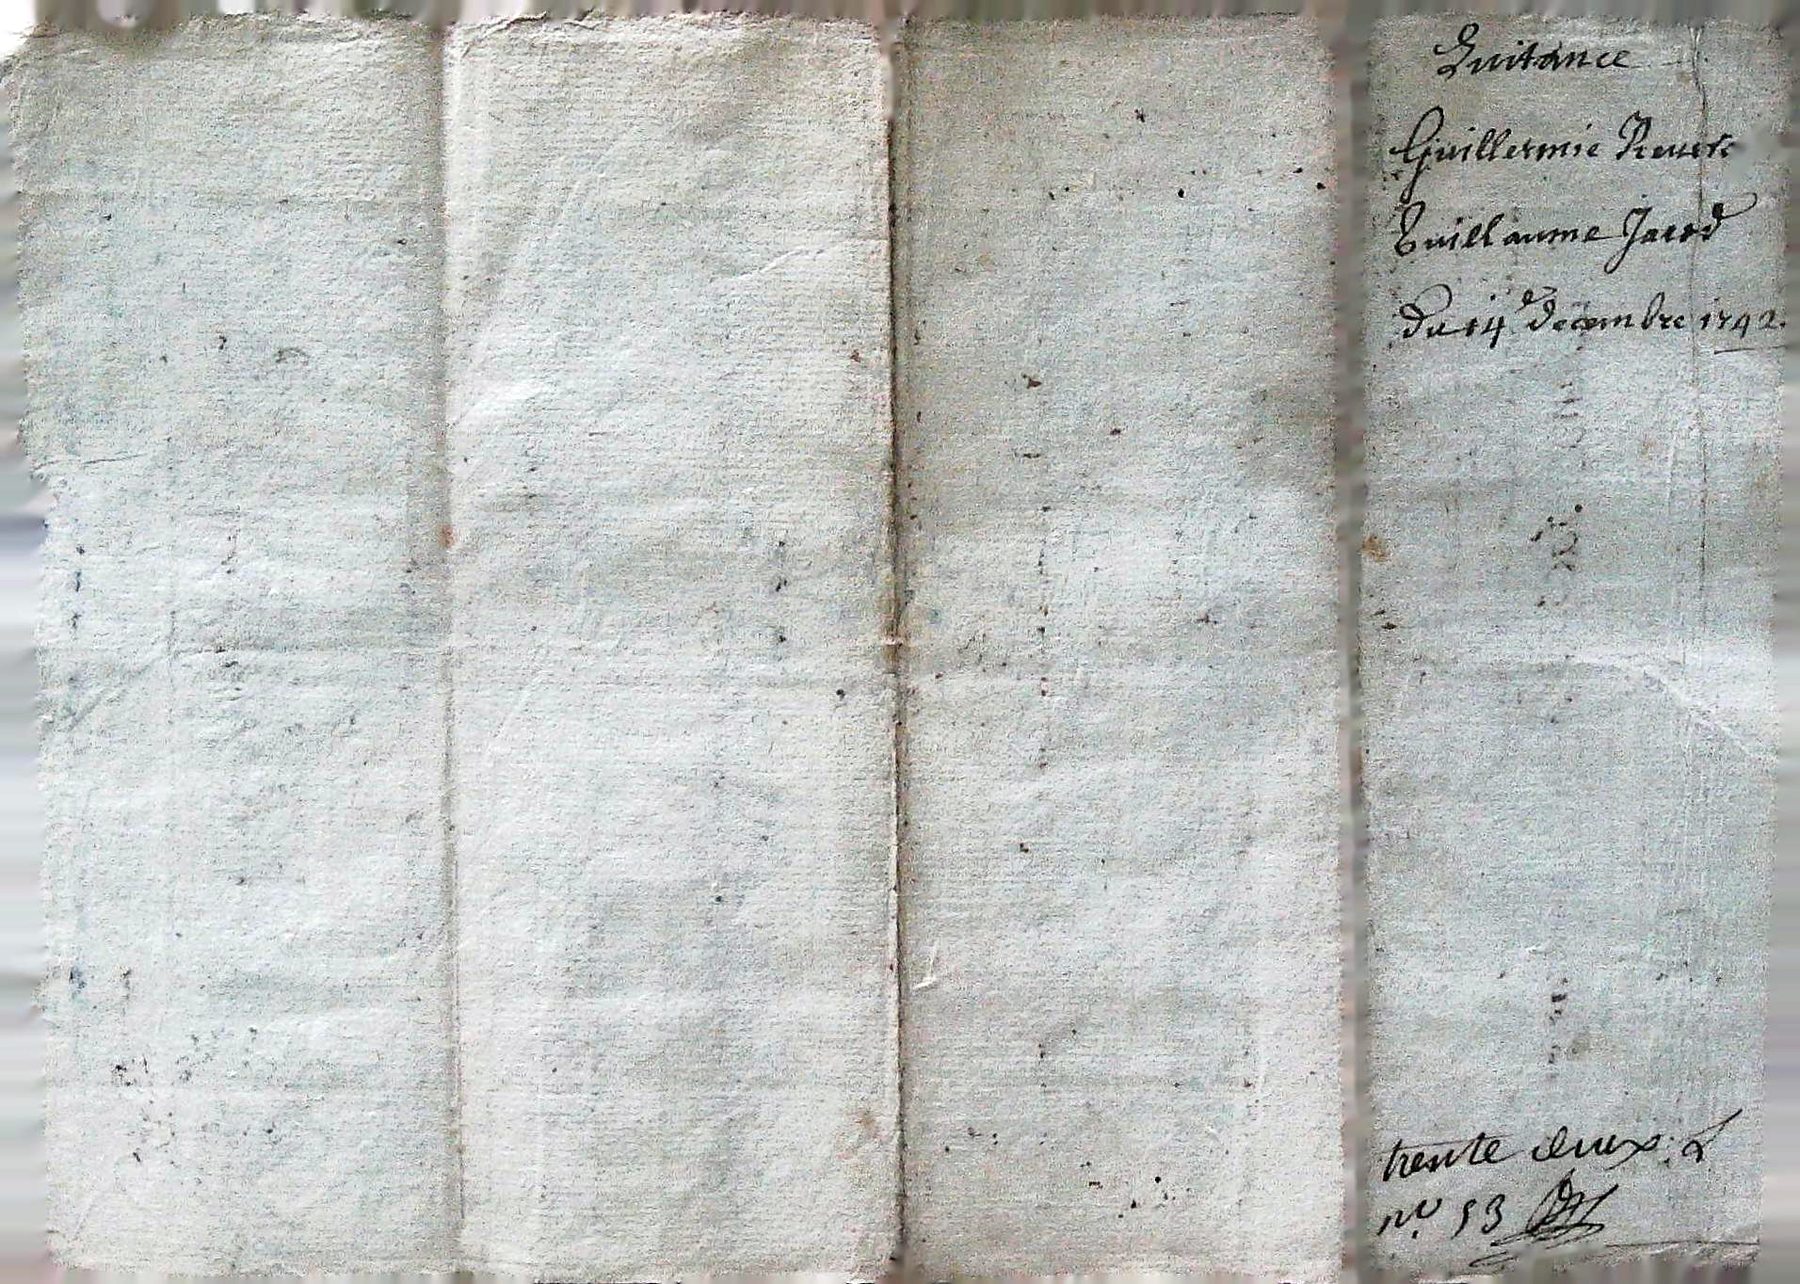 Quitance
Guillermie Revert
Guillaume Jacod
du 14e decembre 1742.
trente deux: L
no. 53